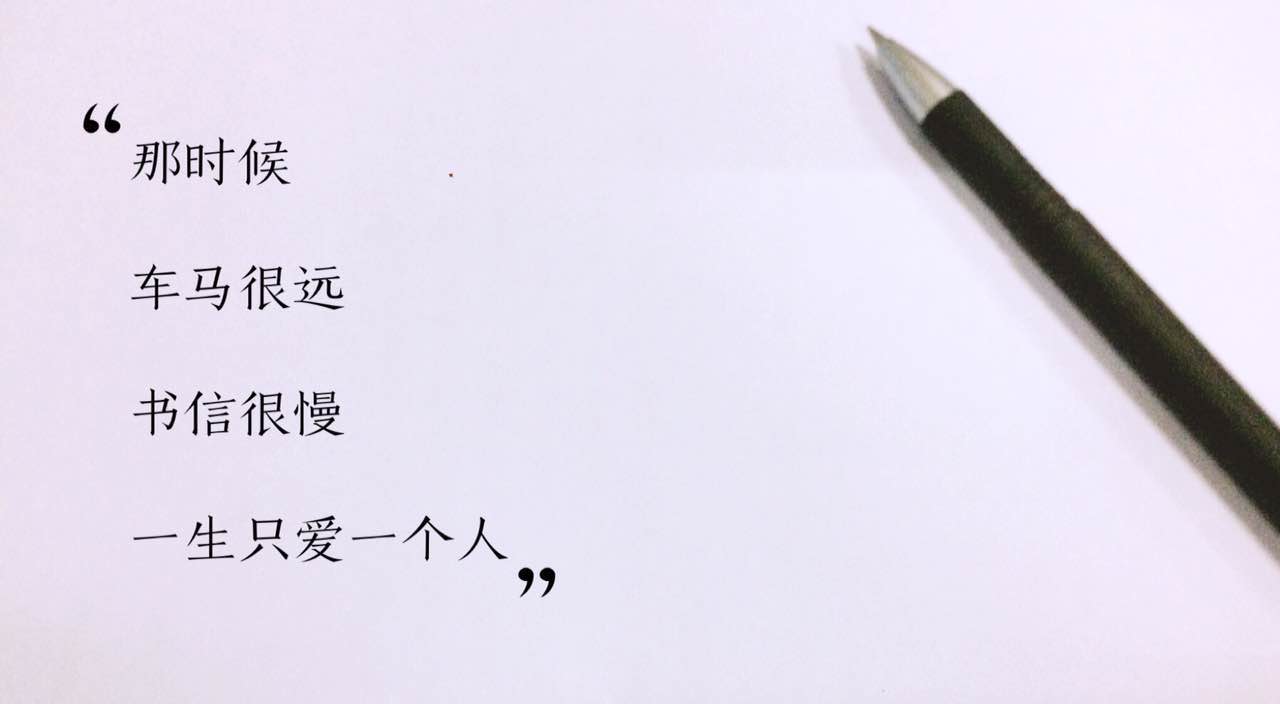 “那时候
车马很远
书信很慢
一生只爱一个人”